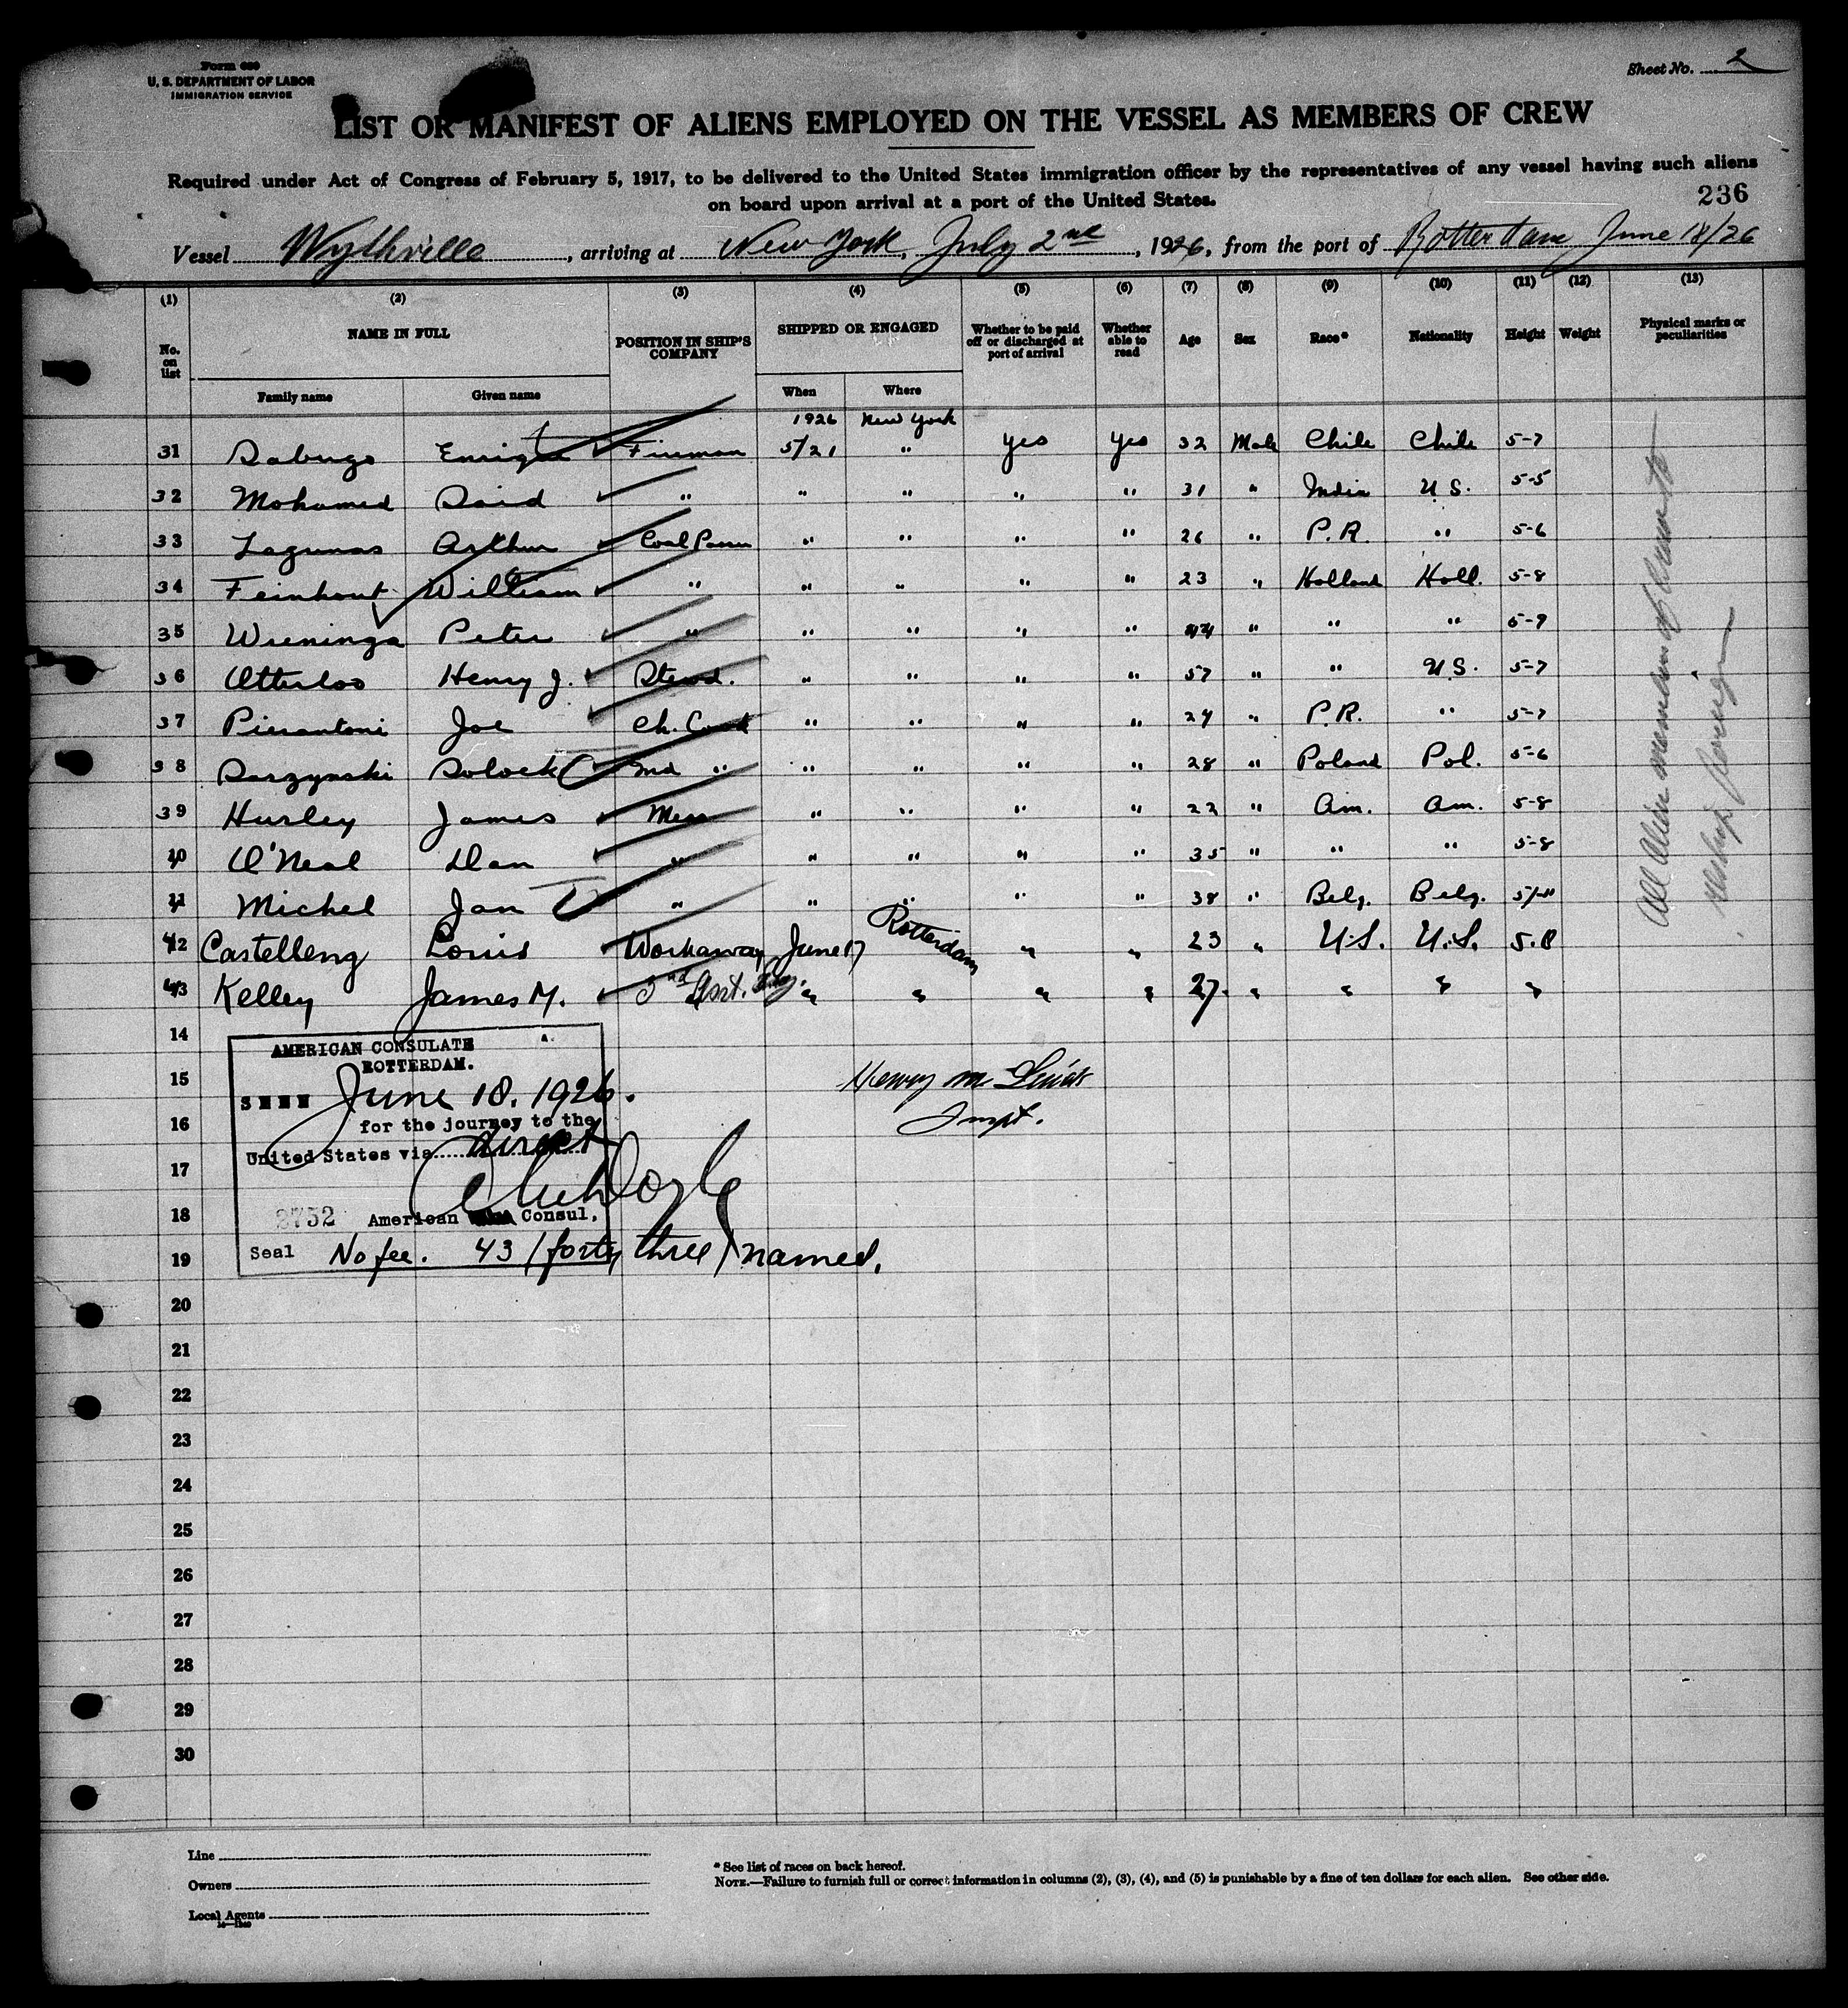 Form 680
U. S. DEPARTMENT OF LABOR
IMMIGRATION SERVICE
Sheet No. 2
LIST OR MANIFEST OF ALIENS EMPLOYED ON THE VESSEL AS MEMBERS OF CREW
Required under Act of Congress of February 5, 1917, to be delivered to the United States immigration officer by the representatives of any vessel having such aliens
on board upon arrival at a port of the United States.
236
Vessel Wythville, arriving at New York, July 2nd, 1926, from the port of Rotterdam June 18/26
(1) (2) (3) (4) (5) (6) (7) (8) (9) (10) (11) (12) (13)
No. on list NAME IN FULL POSITION IN SHIP'S COMPANY SHIPPED OR ENGAGED Whether to be paid off or discharged at port of arrival Whether able to read Age Sex Race* Nationality Height Weight Physical marks or peculiarities
Family name Given name When Where
1926 New York
31 Sabugo Enrique Fireman 5/21 " yes yes 32 Male Chile Chile 5-7
32 Mohamed Said " " " " " 31 " India U.S. 5-5
33 Lagunas Arthur Coal Passer " " " " 26 " P.R. " 5-6
34 Feinhout William " " " " " 23 " Holland Holl. 5-8
35 Wieninga Peter " " " " " 44 " " " 5-9
36 Otterloo Henry J. Stewd. " " " " 57 " " U.S. 5-7
37 Pierantoni Joe Ch. Cook " " " " 24 " P.R. " 5-7
38 Sarzynski 2nd " " " " " 28 " Poland Pol. 5-6
39 Hurley James Mess " " " " 22 " Am. Am. 5-8
40 O'Neal Dan " " " " " 35 " " " 5-8
41 Michel Jan " " " " " 38 " Belg. Belg. 5/-11
42 Castelleng Louis Workaway June 17 Rotterdam " " 23 " U.S. U.S. 5.8
43 Kelley James M. 3rd Asst. Eng. " " " " 27. " " " "
All Alien members of
14
AMERICAN CONSULATE
ROTTERDAM.
15 Henry M
SEEN June 18. 1926.
16 Inspt.
for the journey to the
United States via direct
17
18
2752 American Consul,
19
Seal No fee. 43 (forty three) names.
20
21
22
23
24
25
26
27
28
29
30
Line
Owners
Local Agents
* See list of races on back hereof.
NOTE.—Failure to furnish full or correct information in columns (2), (3), (4), and (5) is punishable by a fine of ten dollars for each alien. See other side.